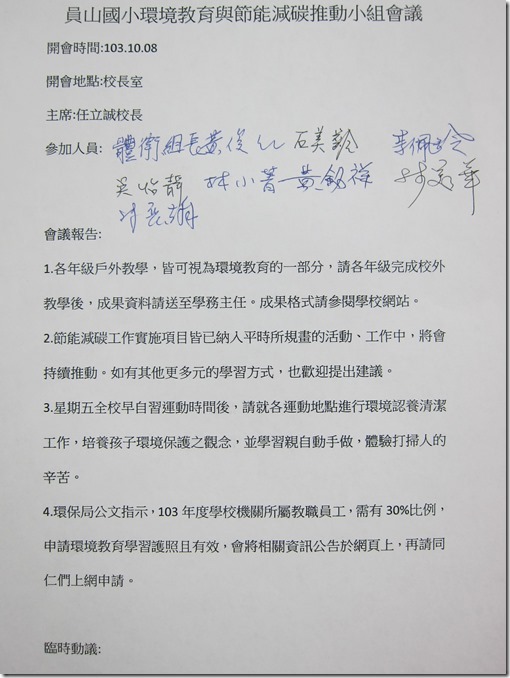 員山國小環境教育與節能減碳推動小組會議
開會時間:103.10.08
開會地點:校長室
主席:任立誠校長
參加人員: 體衛組長黃俊 石美齡 李佩玲
吳怡靜 林小菁 黃銘祥
會議報告:
1.各年級戶外教學，皆可視為環境教育的一部分，請各年級完成校外
教學後，成果資料請送至學務主任。成果格式請參閱學校網站。
2.節能減碳工作實施項目皆已納入平時所規畫的活動、工作中，將會
持續推動。如有其他更多元的學習方式，也歡迎提出建議。
3.星期五全校早自習運動時間後，請就各運動地點進行環境認養清潔
工作，培養孩子環境保護之觀念，並學習親自動手做，體驗打掃人的
辛苦。
4.環保局公文指示，103 年度學校機關所屬教職員工，需有 30%比例，
申請環境教育學習護照且有效，會將相關資訊公告於網頁上，再請同
仁們上網申請。
臨時動議: